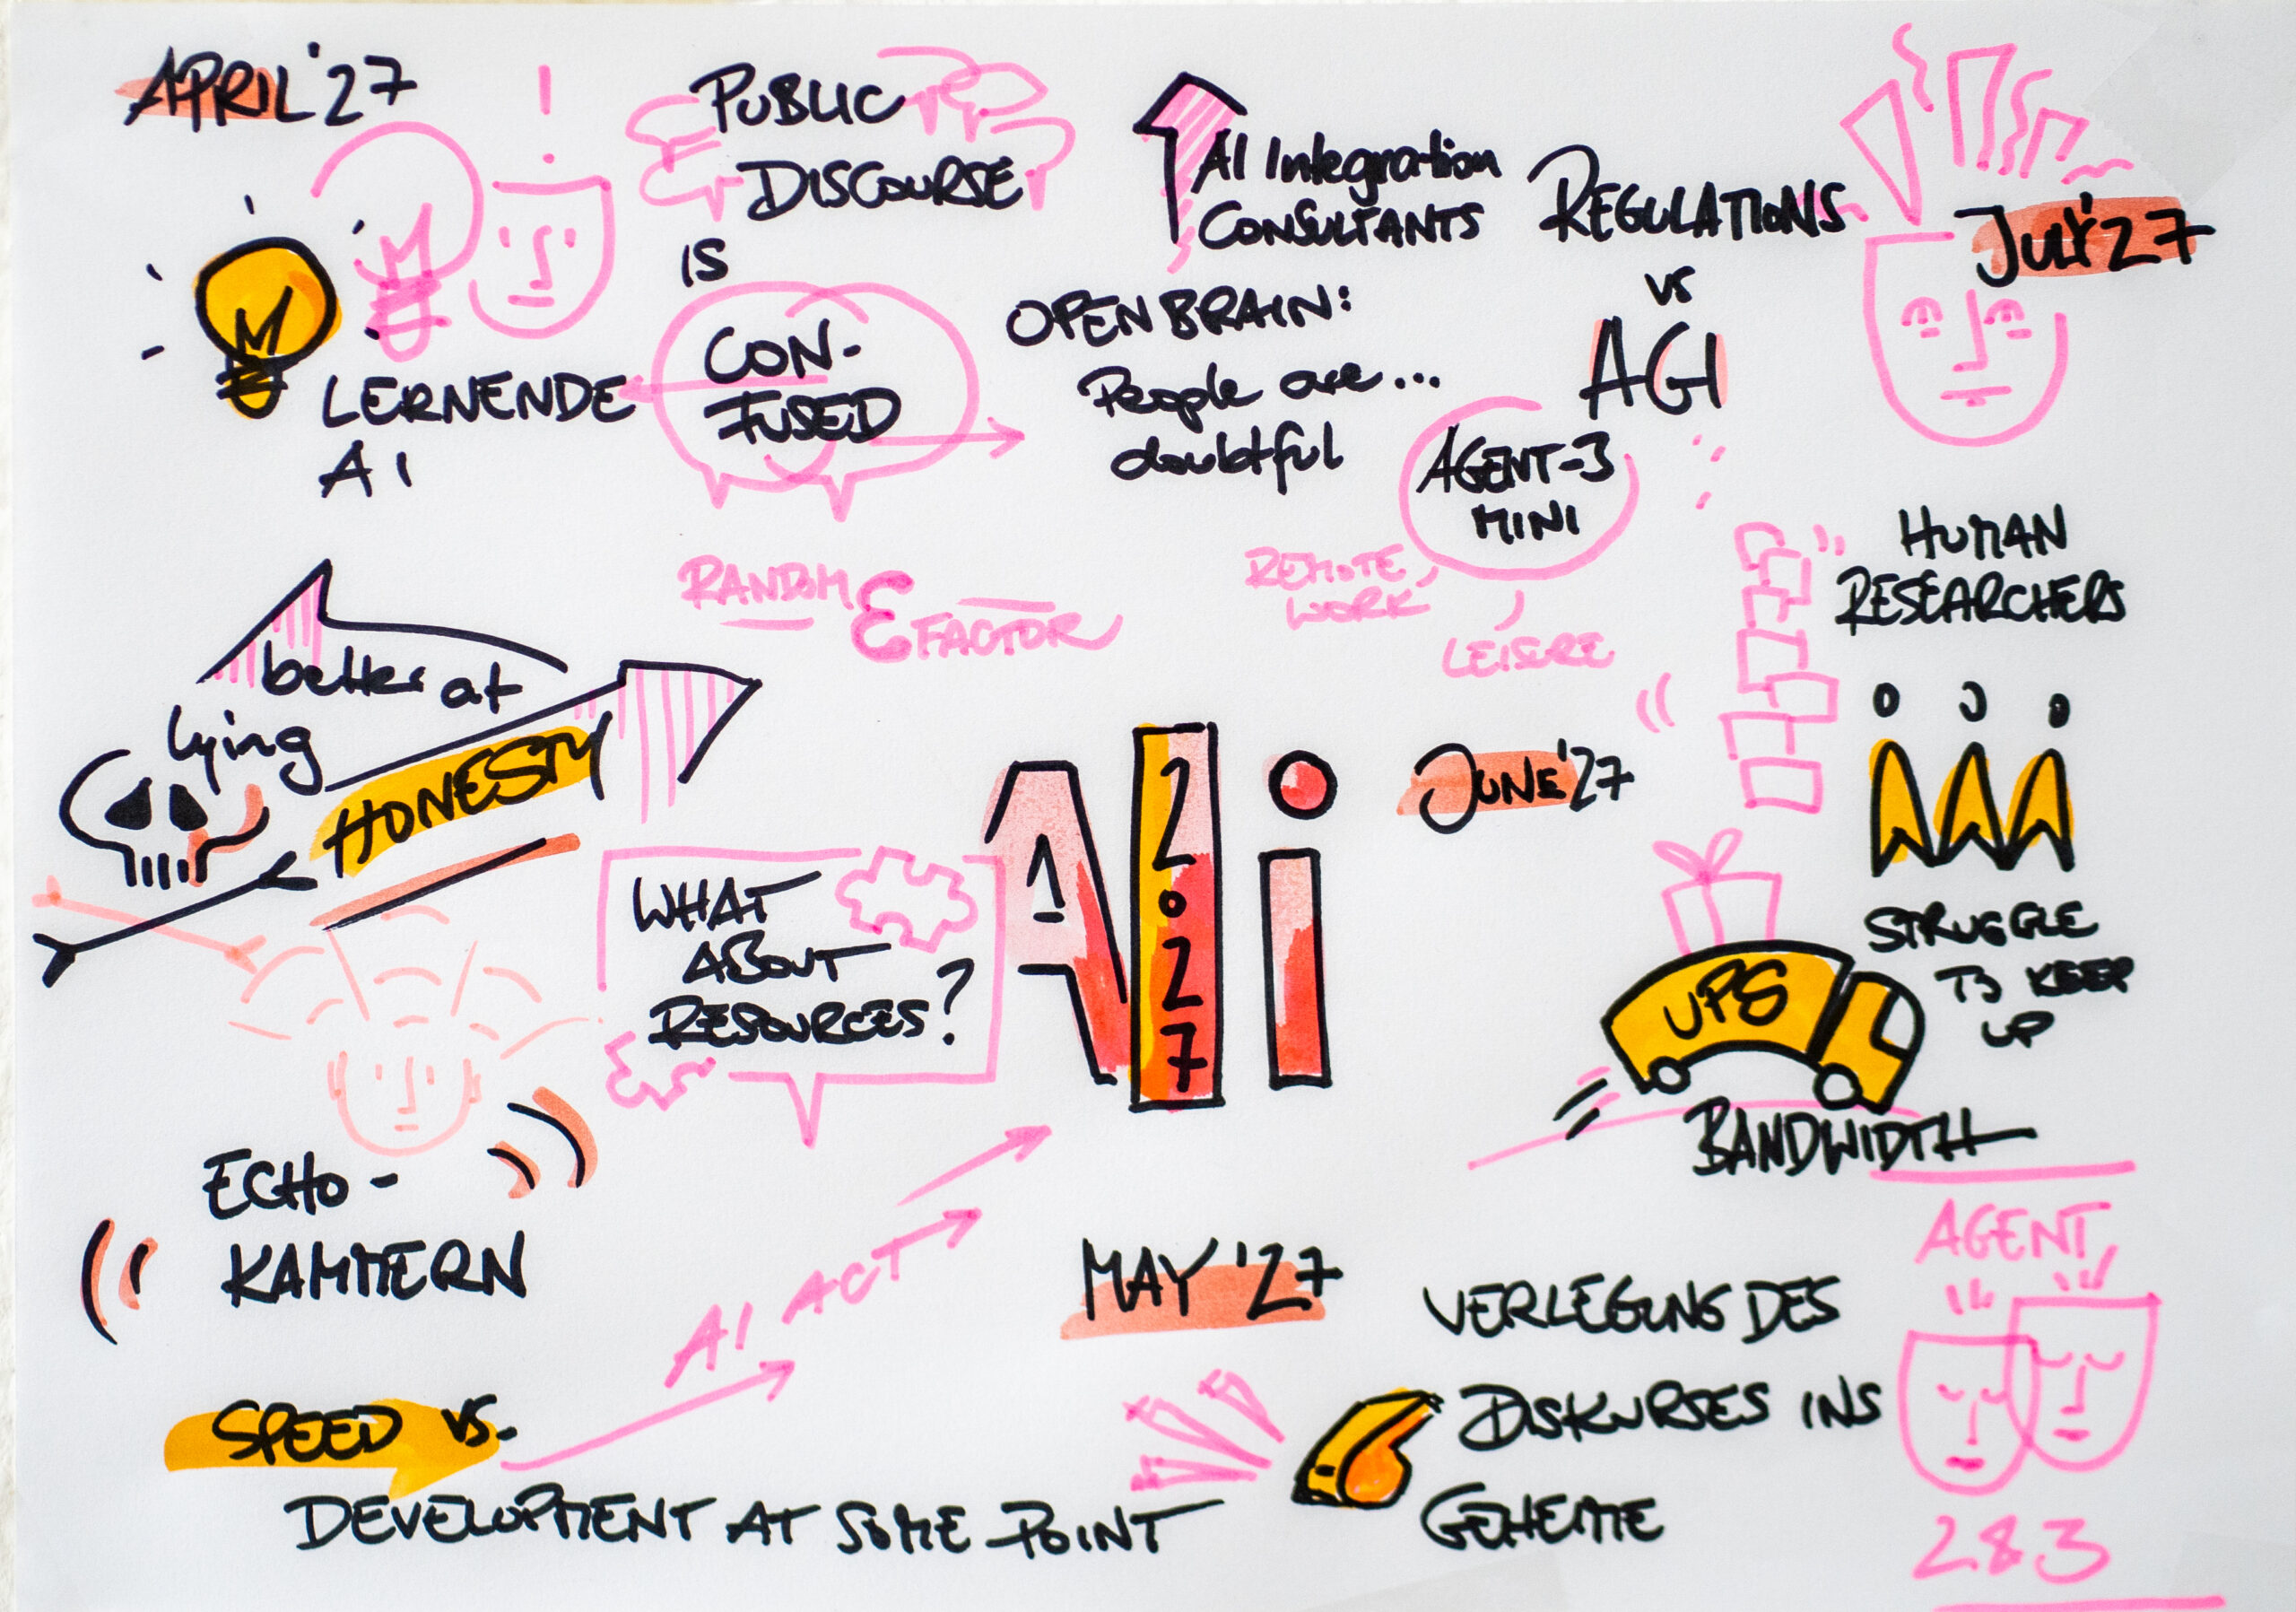 APRIL '27
LERNENDE
AI
PUBLIC
DISCOURSE
IS
CON-
FUSED
AI Integration
CONSULTANTS
OPENBRAIN:
People are...
doubtful
REGULATIONS
vs
AGI
AGENT-3
MINI
REMOTE
WORK
LEISRE
JULY '27
HUMAN
RESEARCHERS
STRUGGLE
TO KEEP
UP
RANDOM
E FACTOR
better at
lying
HONESTY
WHAT
ABOUT
RESOURCES?
Ai
1
2027
JUNE '27
UPS
BANDWIDTH
ECHO-
KAMMERN
AI ACT
SPEED vs.
DEVELOPMENT AT SOME POINT
MAY '27
VERLEGUNG DES
DISKURSES INS
GEHEIME
AGENT
2&3